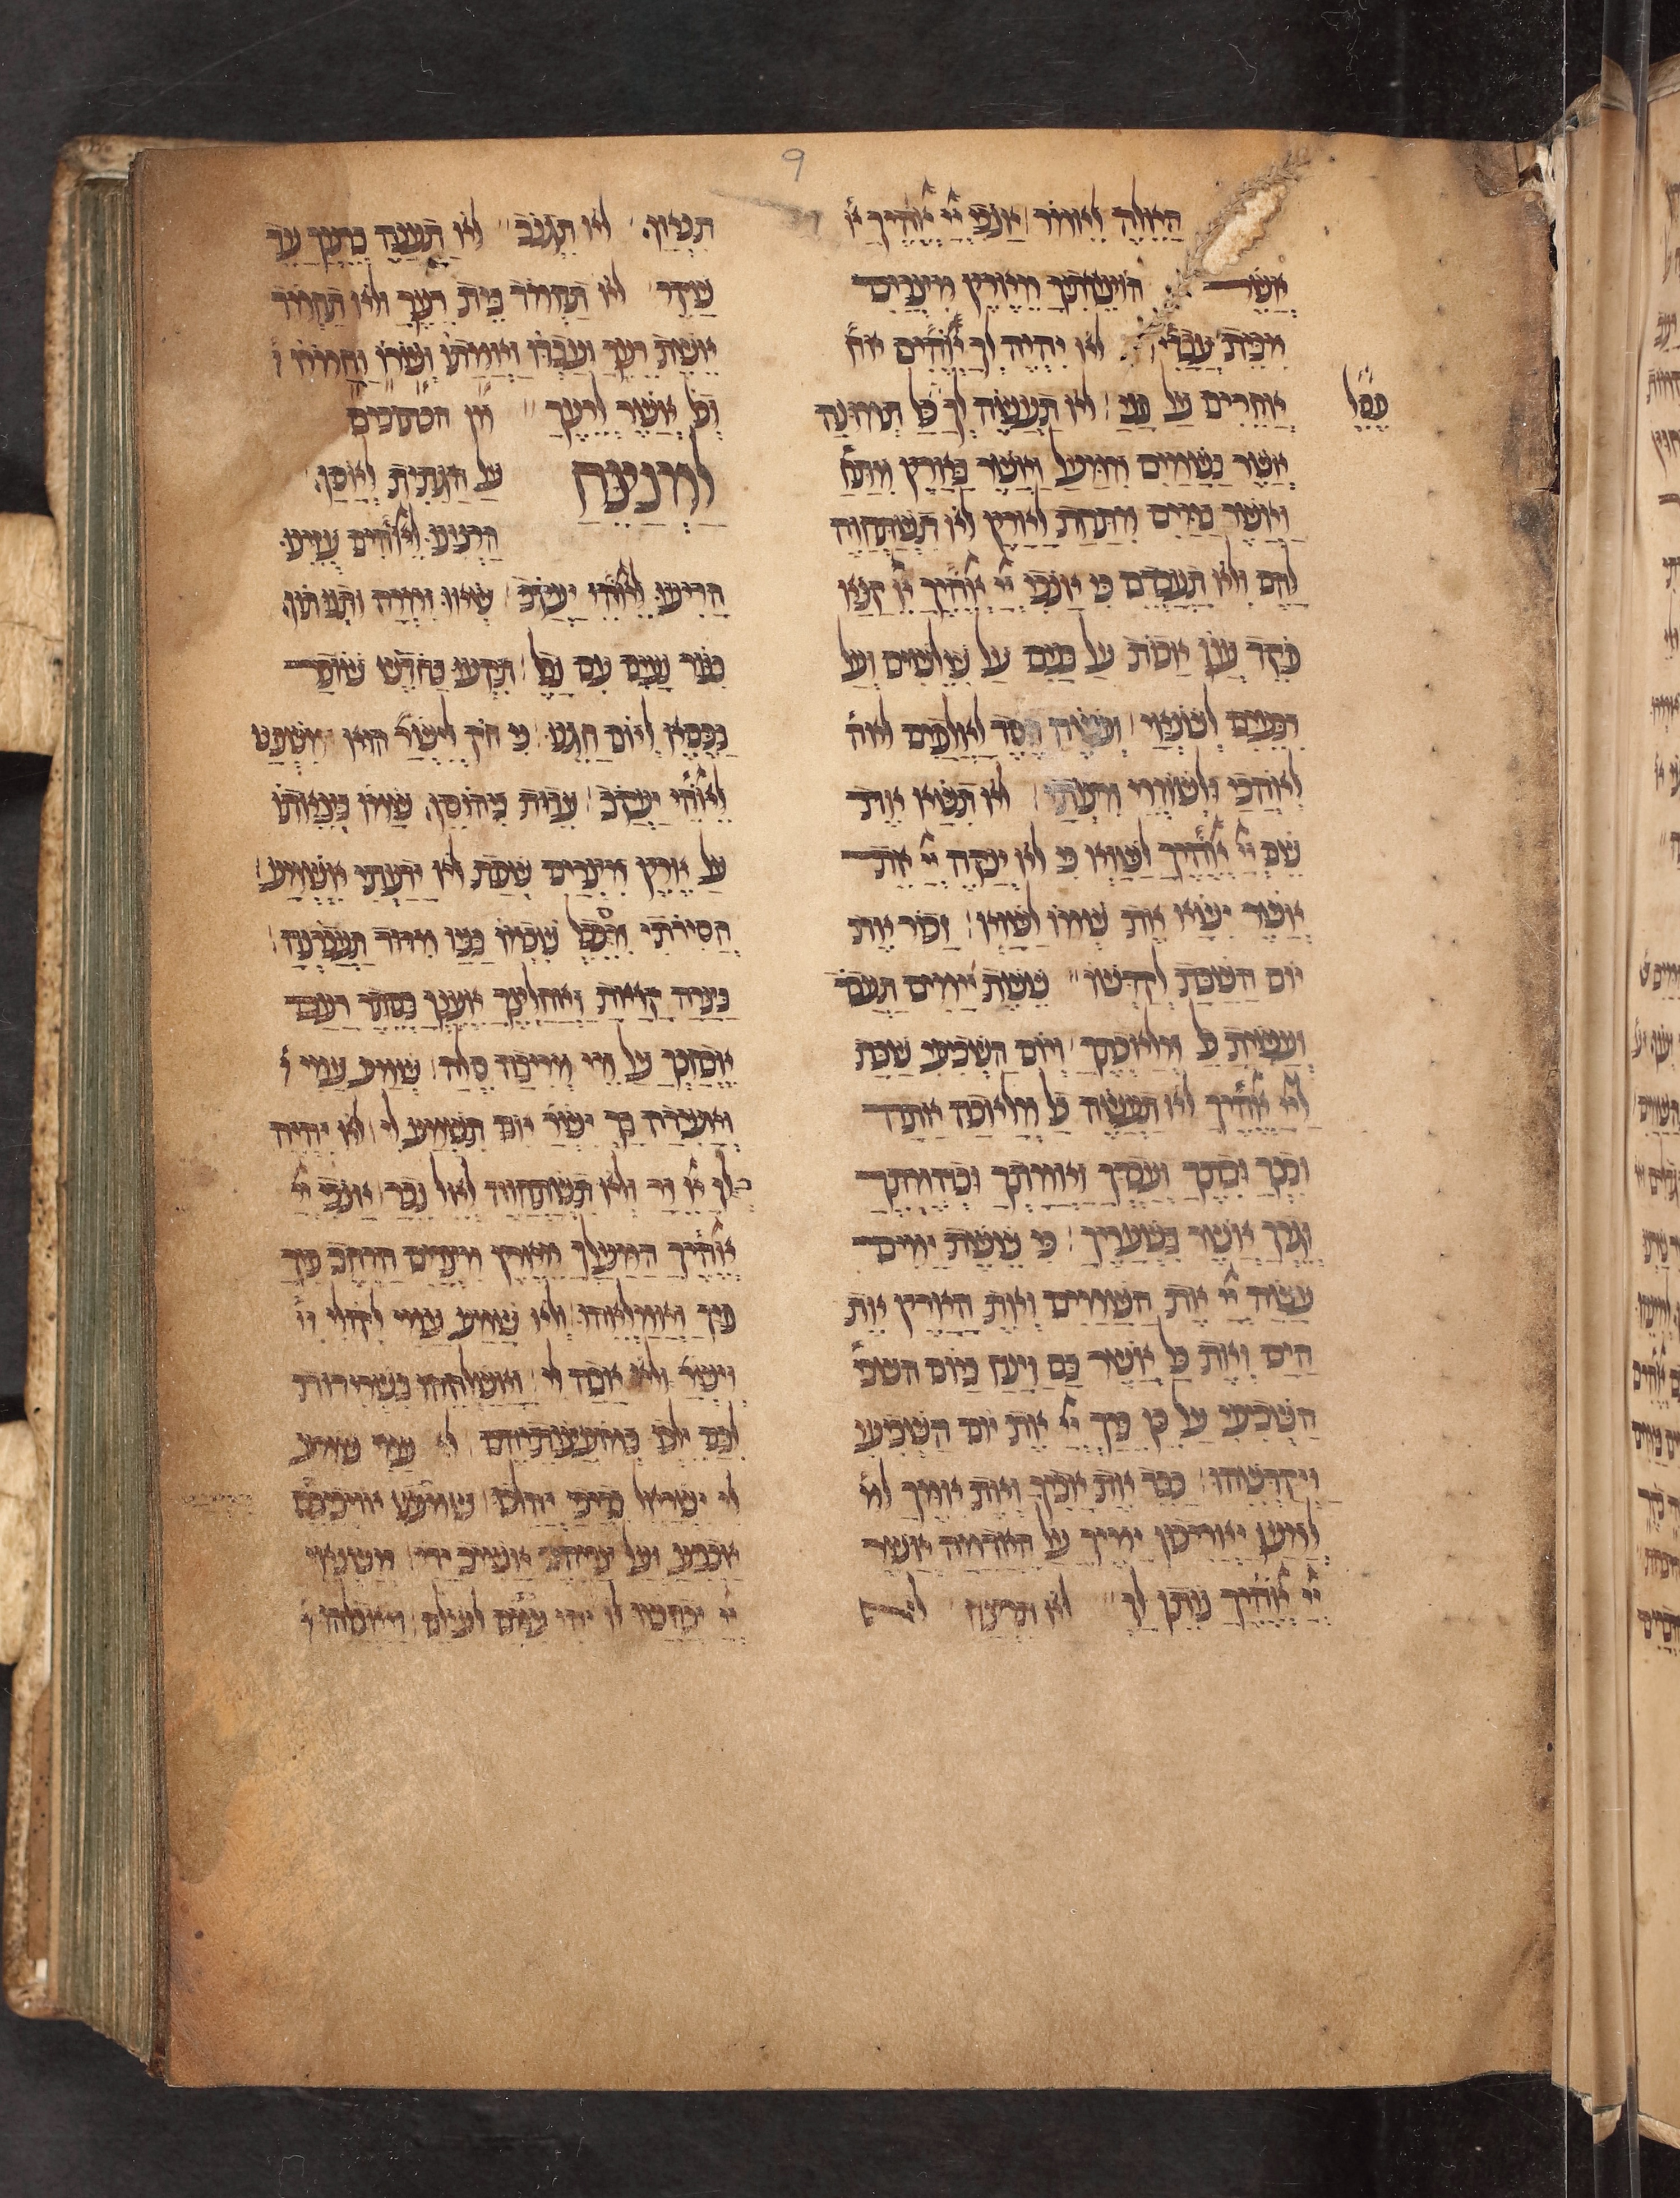 9
האלה לאמר אנכי יי אלהיך א
אשר הוצאתיך מארץ מצרים
מבית עבדי׳ לא יהיה לך אלהים אח׳
אחרים על פני לא תעשה לך כל תמונה
פסל
אשר בשמים ממעל ואשר בארץ מתח׳
ואשר במים מתחת לארץ לא תשתחוה
להם ולא תעבדם כי אנכי יי אלהיך אל קנא
פקד עון אבות על בנים על שלשים ועל
רבעים לשנאי ועשה חסד לאלפים לאה׳
לאהבי ולשומרי מצותי לא תשא את
שם יי אלהיך לשוא כי לא ינקה יי את
אשר ישא את שמו לשוא זכור את
יום השבת לקדשו ששת ימים תעב׳
ועשית כל מלאכתך ויום השביעי שבת
ליי אלהיך לא תעשה כל מלאכה אתה
ובנך ובתך ועבדך ואמתך ובהמתך
וגרך אשר בשעריך כי ששת ימים
עשה יי את השמים ואת הארץ את
הים ואת כל אשר בם וינח ביום השבי׳
השביעי על כן ברך יי את יום השביעי
ויקדשהו כבד את אביך ואת אמך למ׳
למען יאריכון ימיך על האדמה אשר
יי אלהיך נותן לך לא תרצח לא
תנאף לא תגנב לא תענה ברעך עד
שקר לא תחמד בית רעך ולא תחמד
אשת רעך ועבדו ואמתו ושורו וחמורו ו
וכל אשר לרעך מן הכסכים
למנצח על הגתית לאסף
הרנינו לאלהים עוזינו
הריעו לאלהי יעקב שאו זמרה ותנו תוף
כנור נעים עם נבל תקעו בחדש שופר
בכסא ליום חגנו כי חק לישר׳ הוא משפט
לאלהי יעקב עדות ביהוסף שמו בצאתו
על ארץ מצרים שפת לא ידעתי אשמע
הסירותי מסבל שכמו כפיו מדוד תעברנה
בצרה קראת ואחלצך אענך בסתר רעם
אבחנך על מי מריבה סלה שמע עמי ו
ואעידה בך ישר׳ אם תשמע לי לא יהיה
בך אל זר ולא תשתחוה לאל נכר אנכי יי
אלהיך המעלך מארץ מצרים הרחב פיך
פיך ואמלאהו ולא שמע עמי לקולי וי׳
וישר׳ לא אבה לי ואשלחהו בשרירות
לבם ילכו במועצותיהם לו עמי שומע
לי ישראל בדרכי יהלכו כמעט אויביהם
אכניע ועל צריהם אשיב ידי משנאי
יי יכחשו לו ויהי עתם לעולם ויאכלהו ו